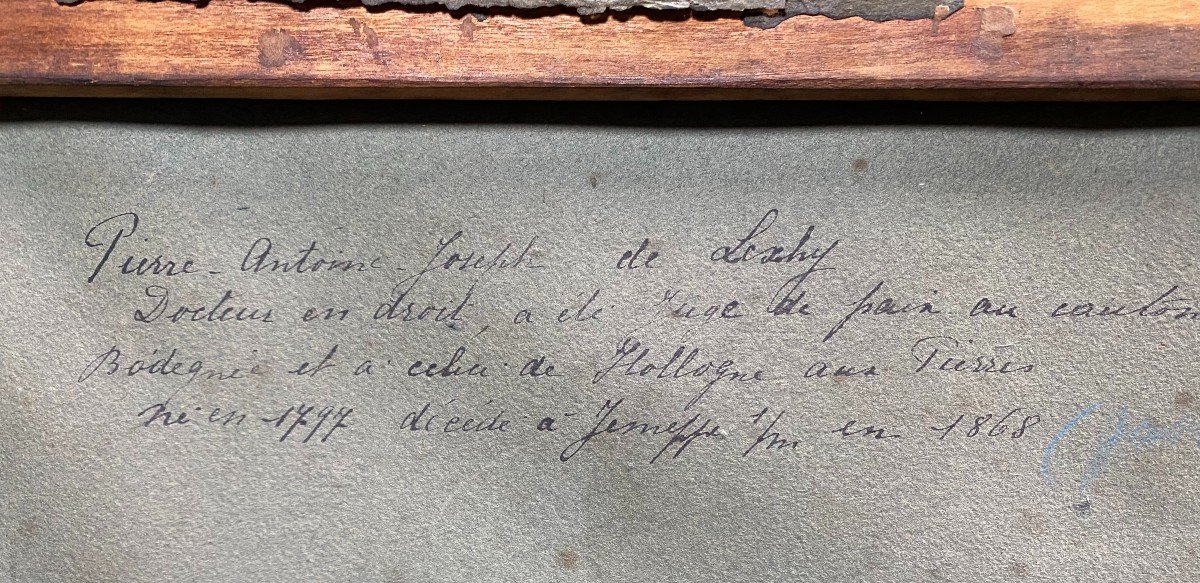 Pierre-Antoine-Joseph de Lexhy
Docteur en droit, a été Juge de paix au canton
Bodegnée et à celui de Hollogne aux Pierres
né en 1797 décédé à Jemeppe s/m en 1868